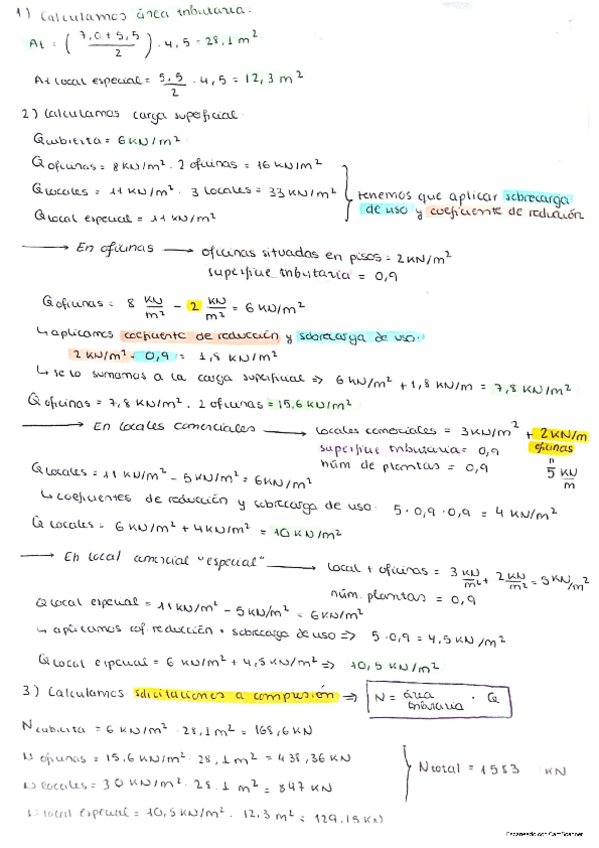 1) Calculamos área tributaria:
At = ( 7,0 + 5,5 / 2 ) · 4,5 = 28,1 m²
At local especial = 5,5 / 2 · 4,5 = 12,3 m²
2) Calculamos carga superficial
Q cubierta = 6 KN/m²
Q oficinas = 8 KN/m² · 2 oficinas = 16 KN/m²
Q locales = 11 KN/m² · 3 locales = 33 KN/m²
Q local especial = 11 KN/m²
tenemos que aplicar sobrecarga
de uso y coeficiente de reducción
→ En oficinas → oficinas situadas en pisos = 2 KN/m²
superficie tributaria = 0,9
Q oficinas = 8 KN/m² - 2 KN/m² = 6 KN/m²
↳ aplicamos coeficiente de reducción y sobrecarga de uso:
2 KN/m² · 0,9 = 1,8 KN/m²
↳ se lo sumamos a la carga superficial ⇒ 6 KN/m² + 1,8 KN/m = 7,8 KN/m²
Q oficinas = 7,8 KN/m² · 2 oficinas = 15,6 KN/m²
→ En locales comerciales → locales comerciales = 3 KN/m² + 2 KN/m
oficinas
superficie tributaria = 0,9
núm de plantas = 0,9
" 5 KN/m
Q locales = 11 KN/m² - 5 KN/m² = 6 KN/m²
↳ coeficientes de reducción y sobrecarga de uso: 5 · 0,9 · 0,9 = 4 KN/m²
Q locales = 6 KN/m² + 4 KN/m² = 10 KN/m²
→ En local comercial "especial" → local + oficinas = 3 KN/m² + 2 KN/m² = 5 KN/m²
núm. plantas = 0,9
Q local especial = 11 KN/m² - 5 KN/m² = 6 KN/m²
↳ aplicamos cof. reducción + sobrecarga de uso ⇒ 5 · 0,9 = 4,5 KN/m²
Q local especial = 6 KN/m² + 4,5 KN/m² ⇒ 10,5 KN/m²
3) Calculamos solicitaciones a compresión ⇒ N = área tributaria · Q
N cubierta = 6 KN/m² · 28,1 m² = 168,6 KN
N oficinas = 15,6 KN/m² · 28,1 m² = 438,36 KN
N locales = 30 KN/m² · 28.1 m² = 847 KN
N local especial = 10,5 KN/m² · 12,3 m² = 129.15 KN
N total = 1583 KN
Escaneado con CamScanner